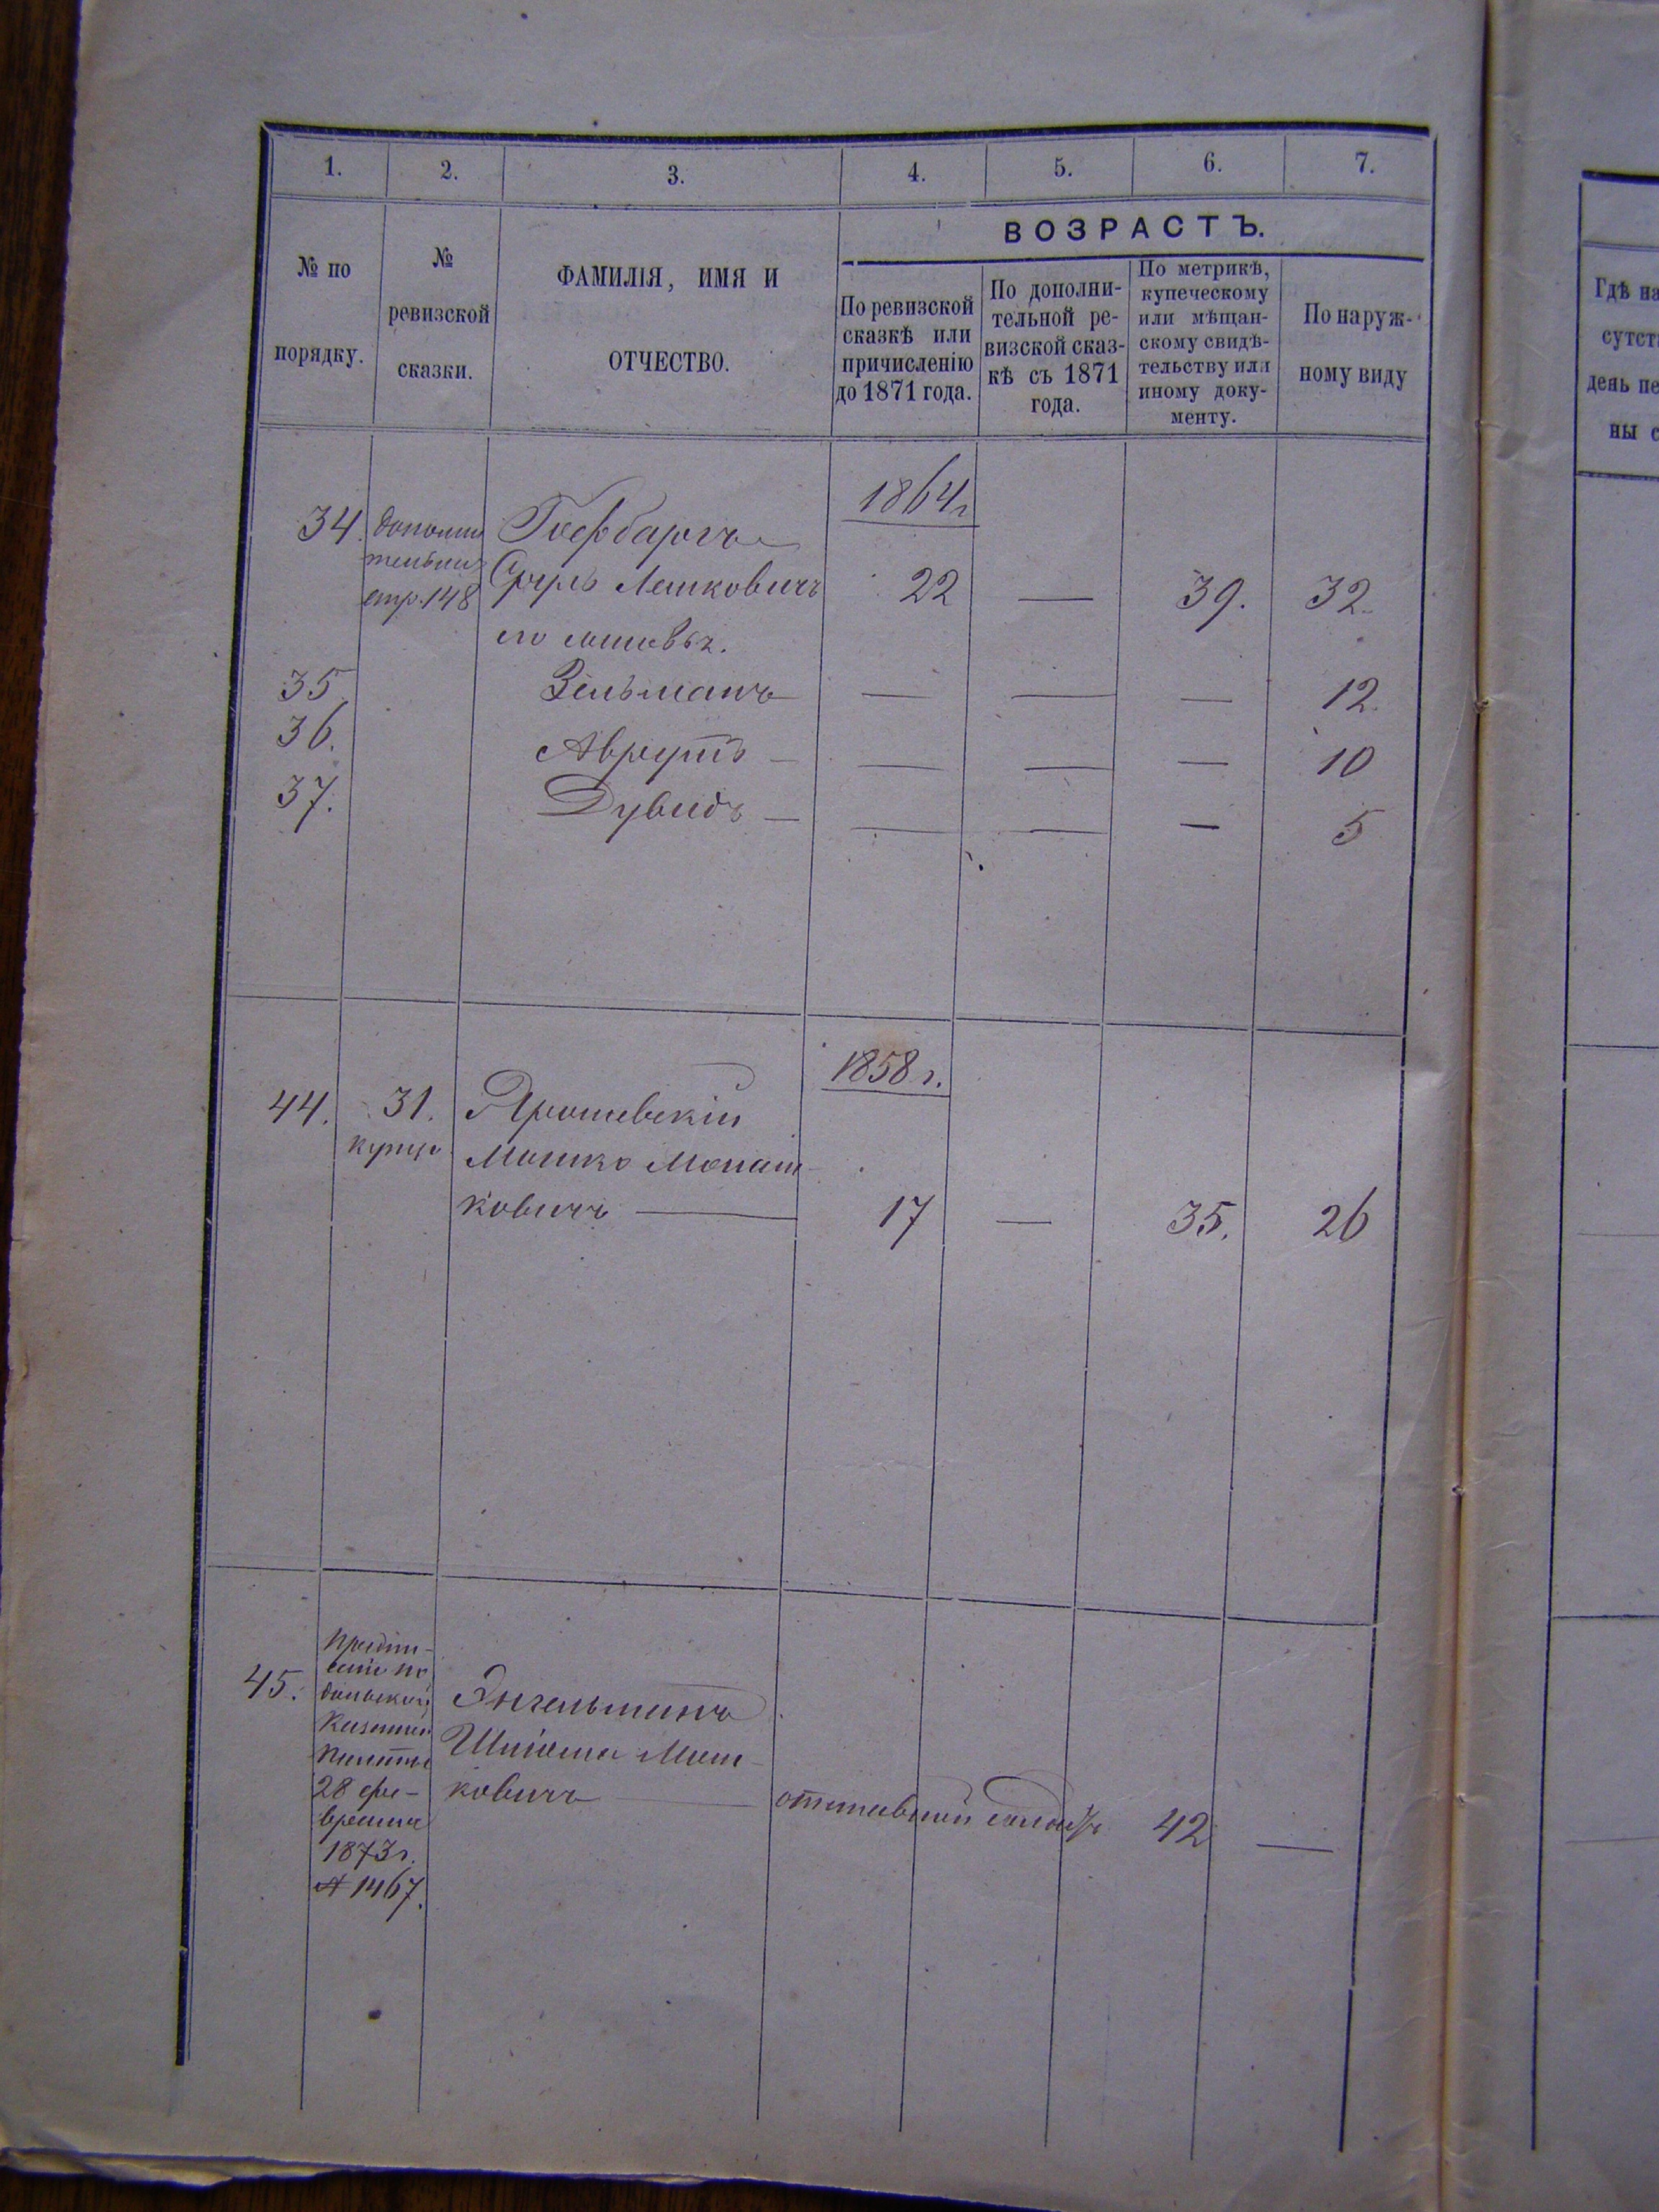 1.
2.
3.
4.
5.
6.
7.
№ по
порядку.
№
ревизской
сказки.
ФАМИЛІЯ, ИМЯ И
ОТЧЕСТВО.
ВОЗРАСТЪ.
По ревизской
сказкѣ или
причисленію
до 1871 года.
По дополни-
тельной ре-
визской сказ-
кѣ съ 1871
года.
По метрикѣ,
купеческому
или мѣщан-
скому свидѣ-
тельству или
иному доку-
менту.
По наруж-
ному виду
1864 г
34. дополни
тельная
стр. 148
Гофбаргъ
Сруль Лейковичъ
22 — 39. 32.
его сыновья.
35 Зельманъ — — — 12.
36. Аврумъ — — — — 10
37. Дувидъ — — — — 5
1858 г.
44. 31.
купца
Ярошевскій
Мошко Монаш-
ковичъ — 17 — 35. 26
45.
Предпи-
саніе По
дольской
Казенной
Палаты
28 фе-
враля
1873 г.
№ 1467.
Энгельманъ
Шлiома Мош-
ковичъ — отставной солдатъ 42 —
Гдѣ на
сутст
день пе
ны с